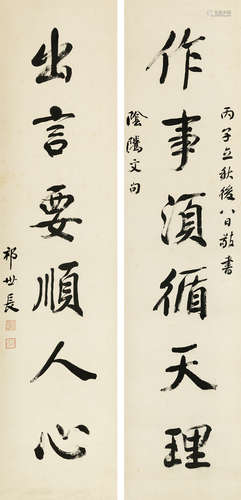 丙子立秋後八日敬書
作事須循天理
陰騭文句
出言要順人心
祁世長